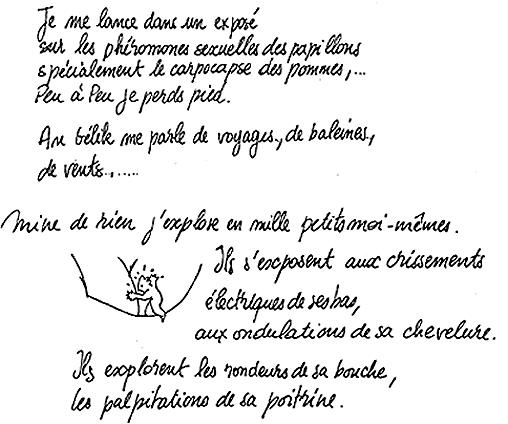 Je me lance dans un exposé
sur les phéromones sexuelles des papillons
spécialement le carpocapse des pommes,...
Peu à Peu je perds pied.
An Bélite me parle de voyages, de baleines,
de vents,.....
mine de rien j'explore en mille petits moi-mêmes.
Ils s'exposent aux crissements
électriques de ses bas,
aux ondulations de sa chevelure.
Ils explorent les rondeurs de sa bouche,
les palpitations de sa poitrine.